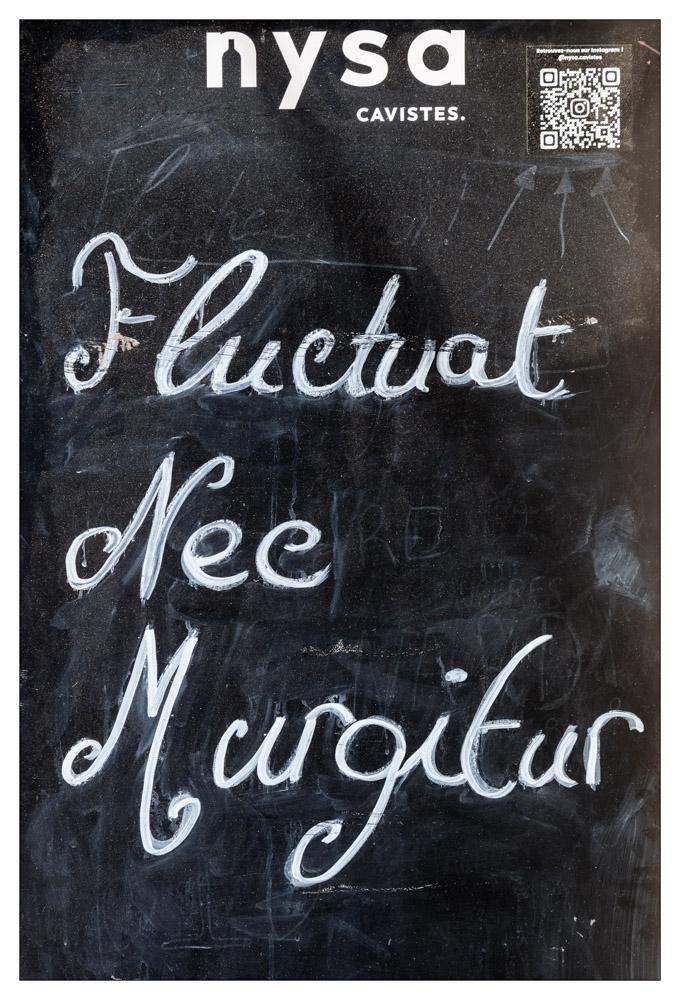 nysa
CAVISTES.
Retrouvez-nous sur Instagram !
@nysa.cavistes
Fluctuat
Nec
Murgitur